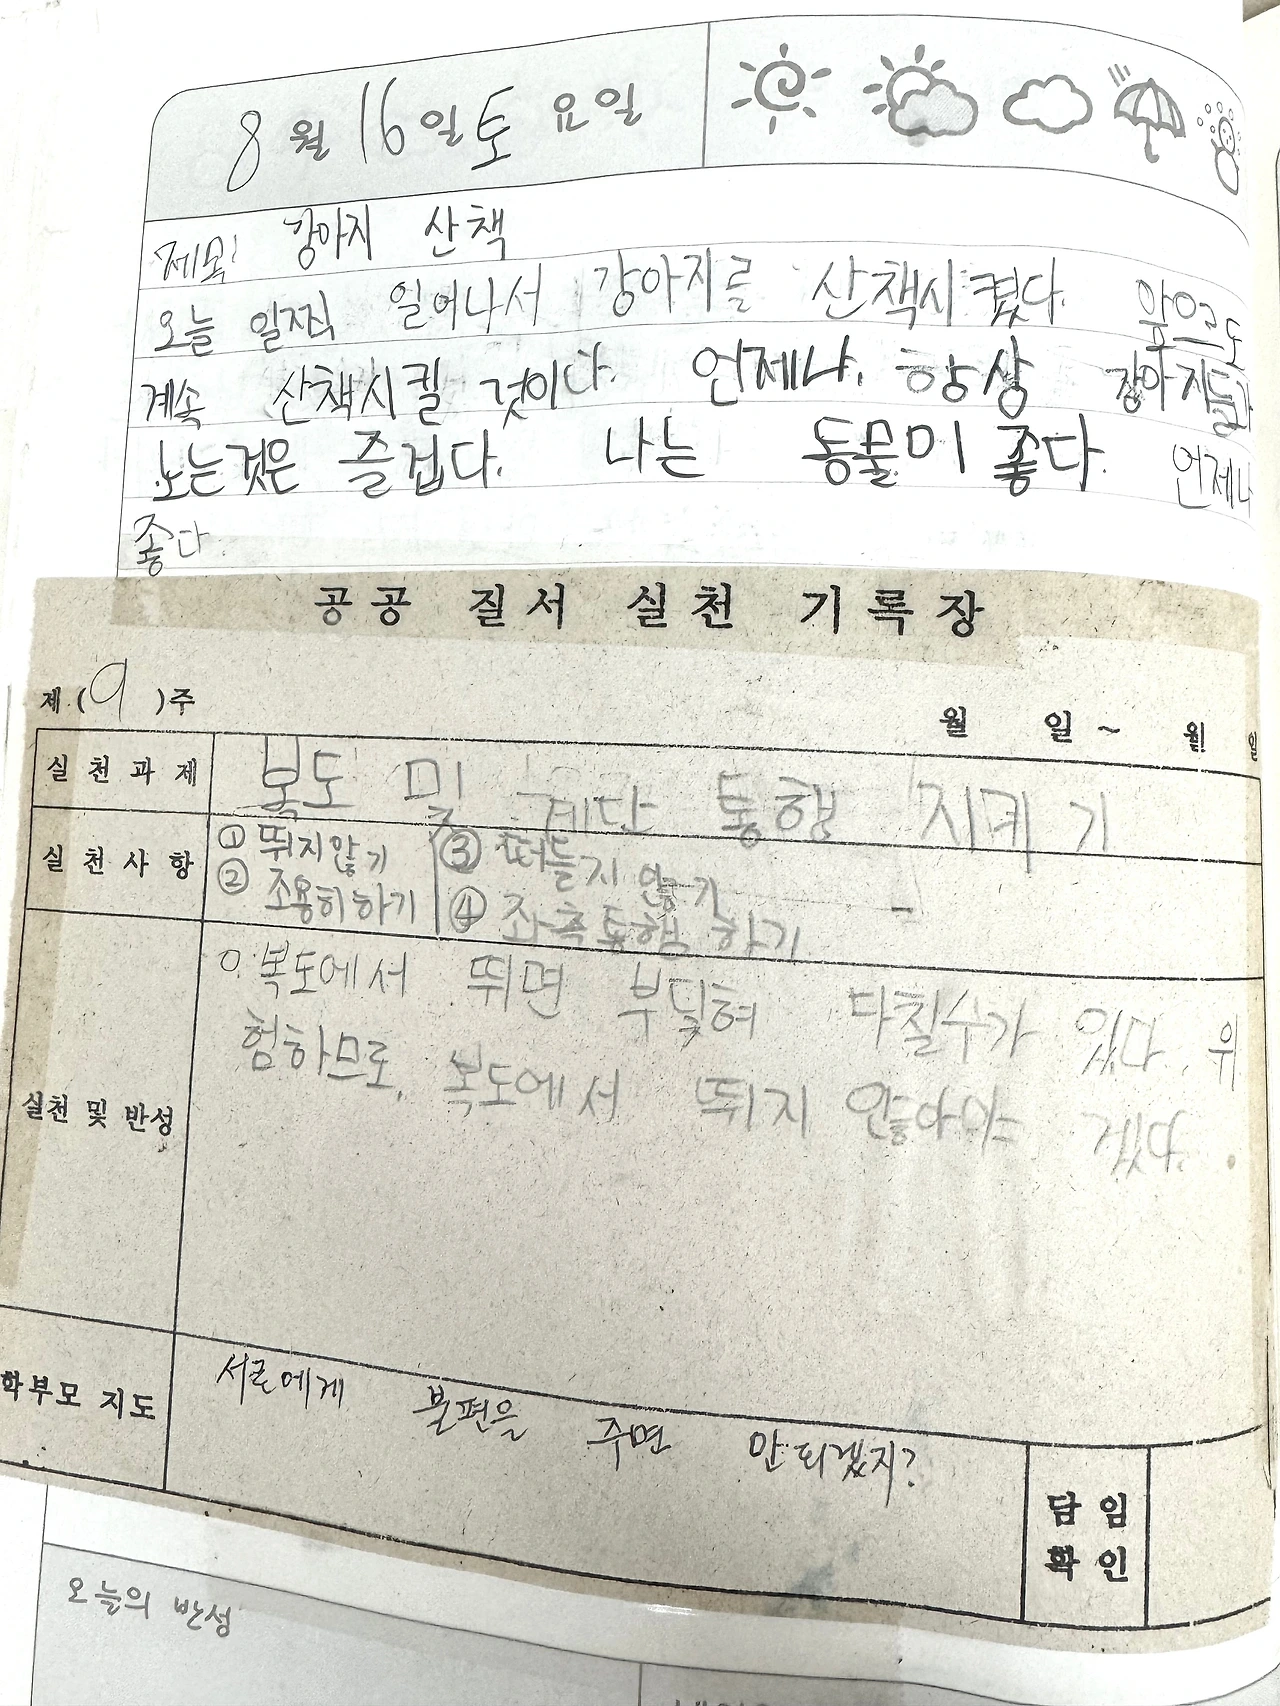 8월 16일 토요일
제목: 강아지 산책
오늘 일찍 일어나서 강아지를 산책시켰다. 앞으로도
계속 산책시킬 것이다. 언제나, 항상 강아지들과
노는것은 즐겁다. 나는 동물이 좋다. 언제나
좋다.
공공 질서 실천 기록장
제 (9)주 월 일~ 월 일
실천과제 복도 및 계단 통행 지켜기
실천사항 ① 뛰지않기 ③ 떠들지 않기
② 조용히하기 ④ 좌측통행 하기
실천 및 반성 ○. 복도에서 뛰면 부딪혀 다칠수가 있다. 위
험하므로, 복도에서 뛰지 않아야 겠다.
학부모 지도 서로에게 불편을 주면 안되겠지?
담임
확인
오늘의 반성